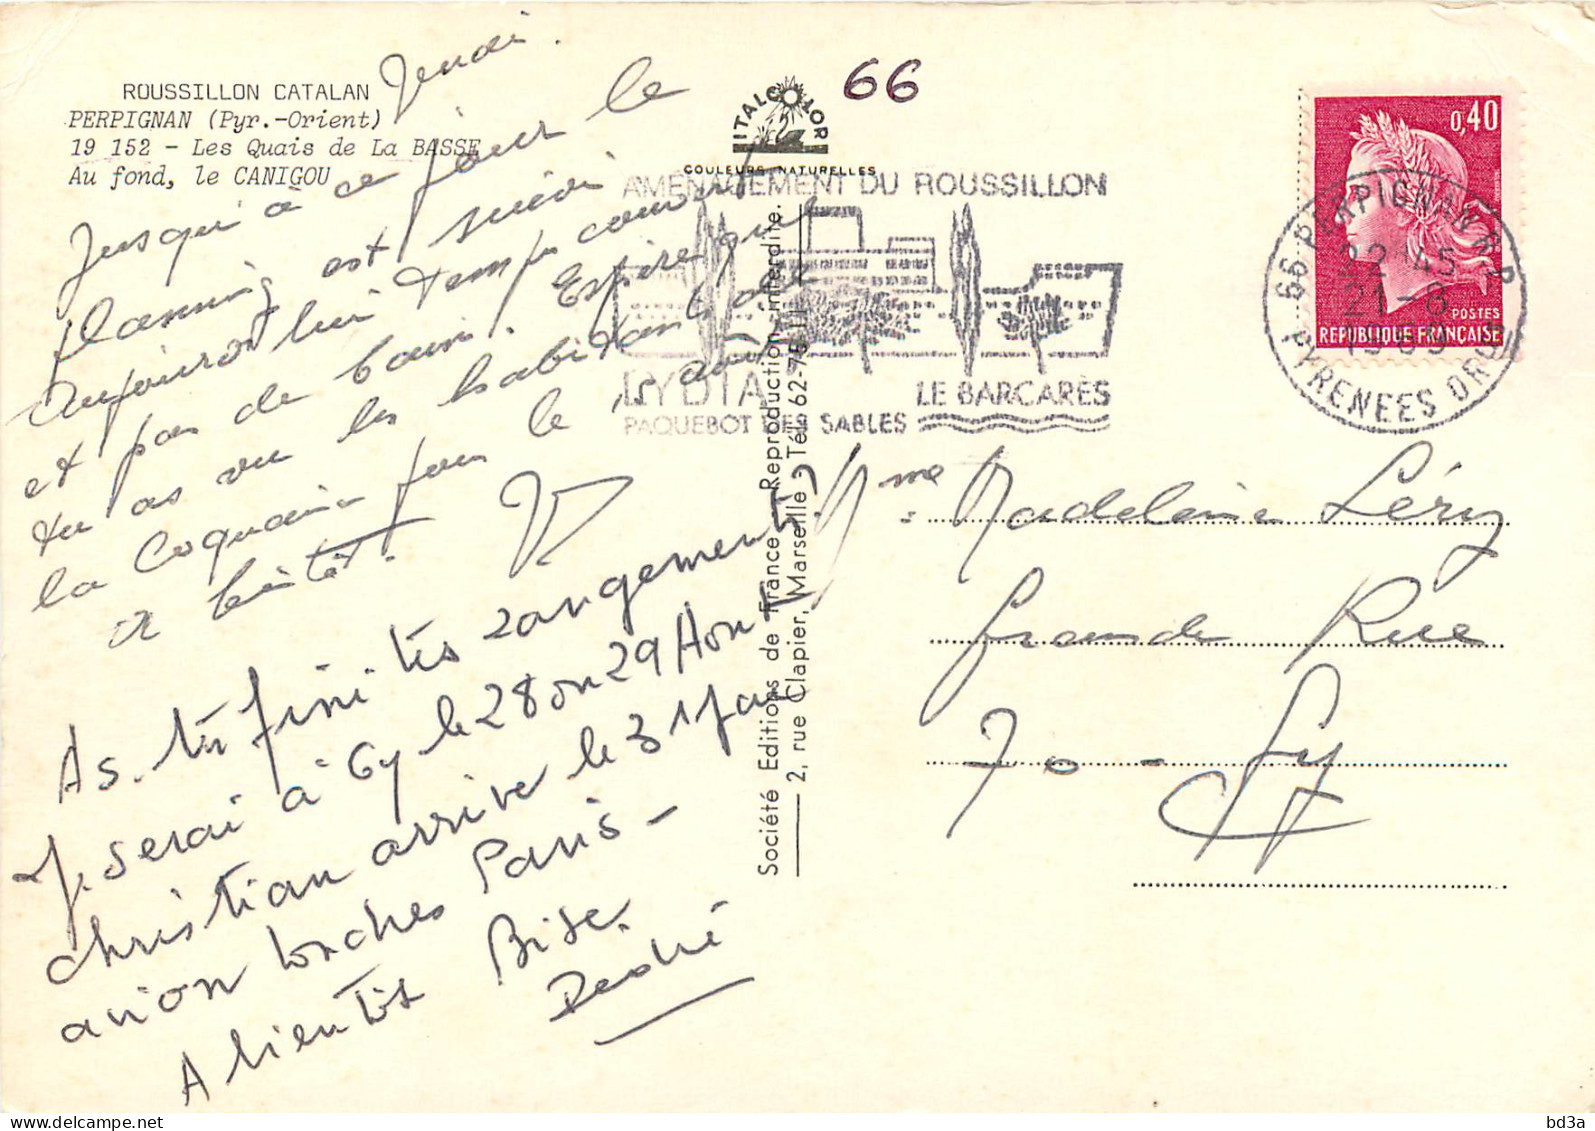 ROUSSILLON CATALAN
PERPIGNAN (Pyr.-Orient)
19 152 - Les Quais de La BASSE
Au fond, le CANIGOU
Jeudi.
Jusqu'à ce jour le
planning est suivi
aujourd'hui temps couvert
et pas de bain. Espère que
tu as vu les habitants de
la Coquaine pour le
A bientôt.
As-tu fini tes rangements?
J. serai à Gy le 28 ou 29 Aout
Christian arrive le 31 par
avion Paris-
A bientôt Bise.
ITALCOLOR
COULEURS NATURELLES
66
AMENAGEMENT DU ROUSSILLON
LYDIA
LE BARCARÈS
PAQUEBOT DES SABLES
Société Editions de France Reproduction interdite.
2, rue Clapier, Marseille - Tél. 62-75-11
0,40
POSTES
REPUBLIQUE FRANÇAISE
66 PERPIGNAN R.P.
22 H45
21 - 8
1969
PYRENEES ORles
Mme Madeleine Léry
Grande Rue
70 - Gy
bd3a